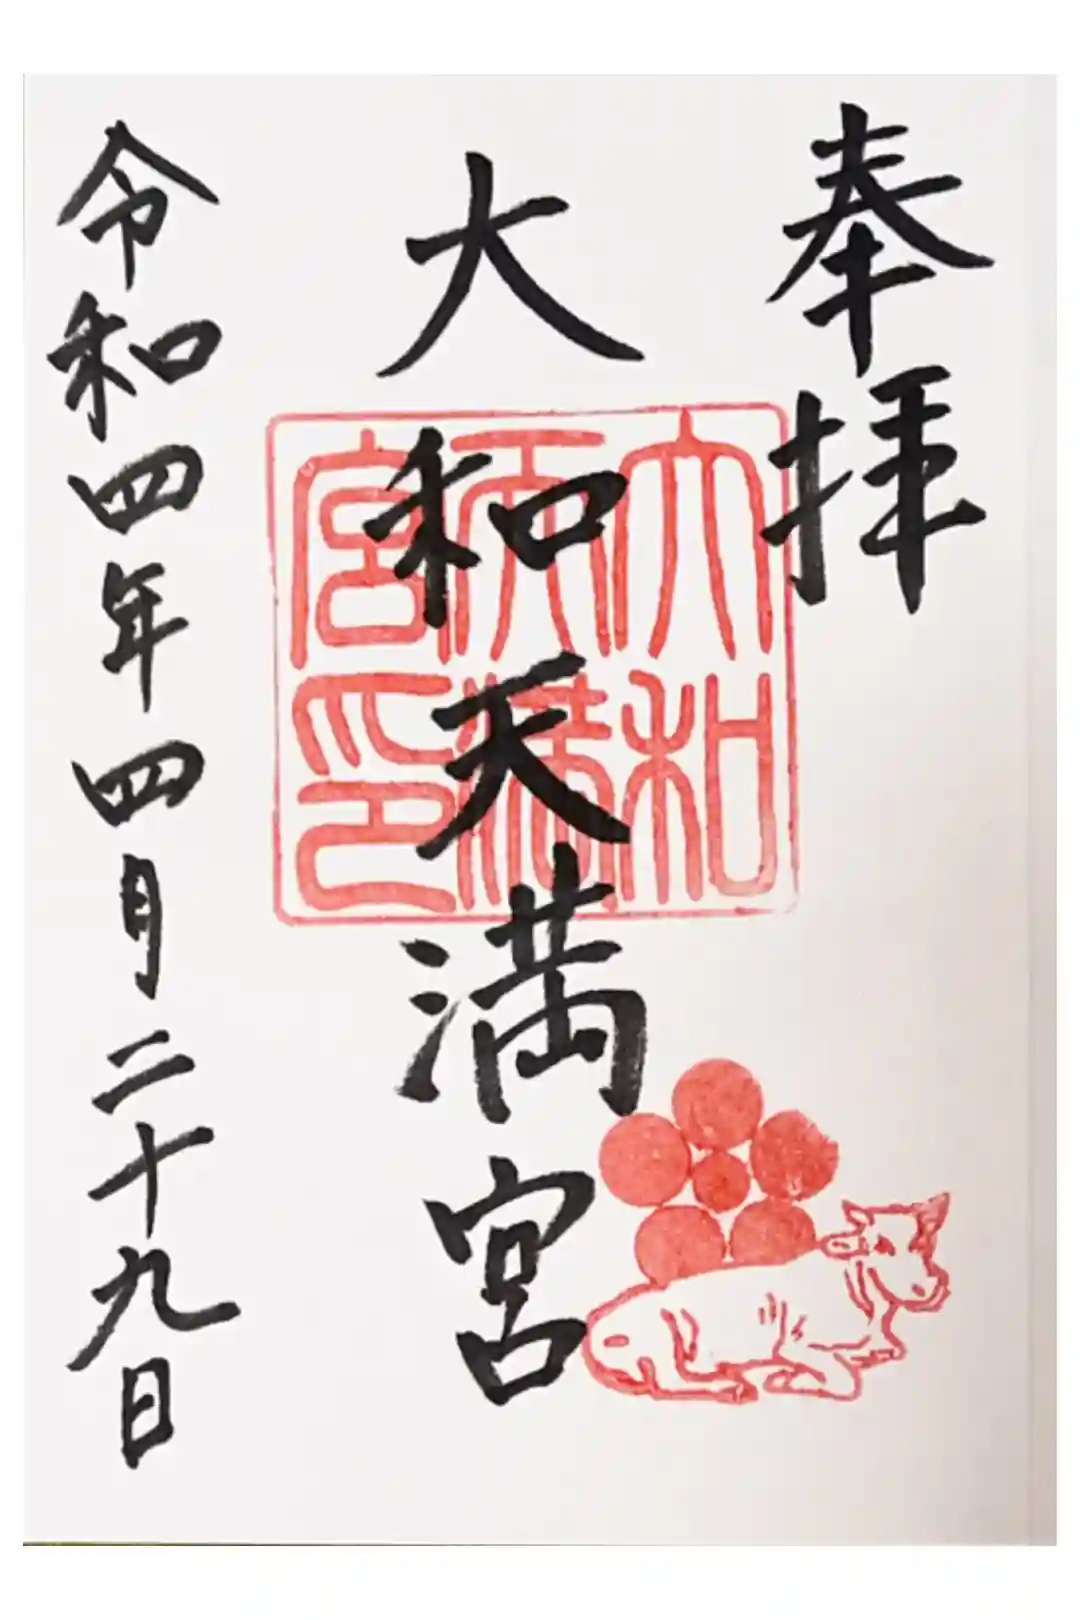 奉拝
大和天満宮
大和天満宮印
令和四年四月二十九日